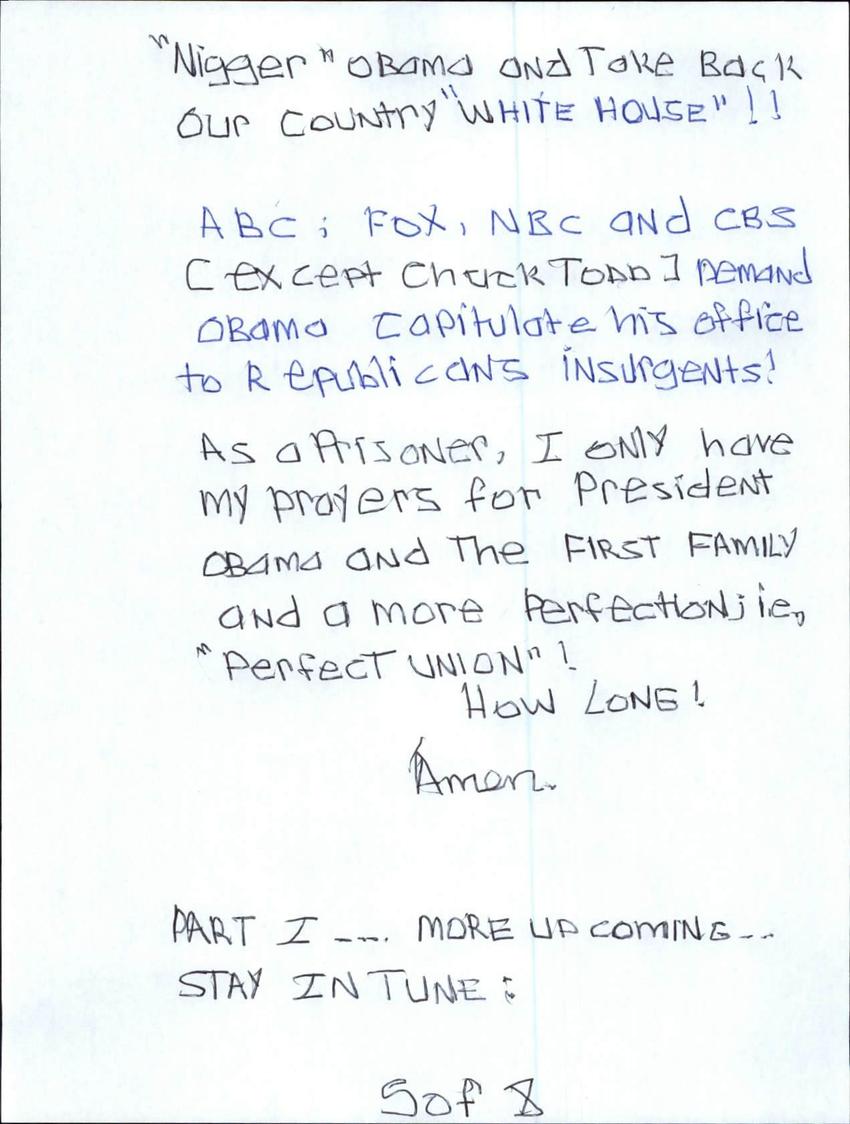 "Nigger" OBama and Take Back
Our Country "WHITE HOUSE"!!
ABC; FOX, NBC and CBS
[except Chuck Todd] Demand
Obama capitulate his office
to Republicans insurgents!
As a Prisoner, I only have
my prayers for President
OBama and The FIRST FAMILY
and a more Perfection; ie,
"Perfect UNION"!
How LONG!
Amen.
PART I ---. MORE UPCOMING---
STAY IN TUNE:
5 of 8